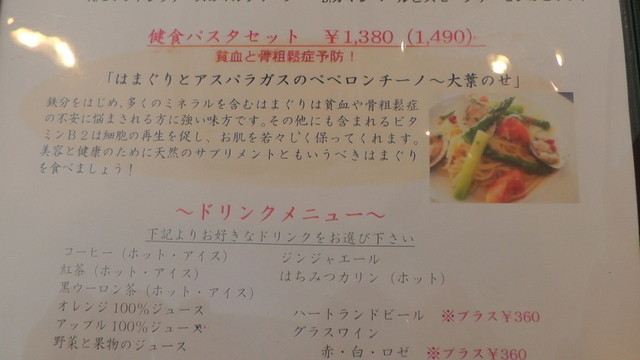 健食パスタセット ￥1,380 (1,490)
貧血と骨粗鬆症予防！
「はまぐりとアスパラガスのペペロンチーノ～大葉のせ」
鉄分をはじめ、多くのミネラルを含むはまぐりは貧血や骨粗鬆症
の不安に悩まされる方に強い味方です。その他にも含まれるビタ
ミンＢ２は細胞の再生を促し、お肌を若々しく保ってくれます。
美容と健康のために天然のサプリメントともいうべきはまぐり
を食べましょう！
～ドリンクメニュー～
下記よりお好きなドリンクをお選び下さい
コーヒー（ホット・アイス）
紅茶（ホット・アイス）
黒ウーロン茶（ホット・アイス）
オレンジ100％ジュース
アップル100％ジュース
野菜と果物のジュース
ジンジャエール
はちみつカリン（ホット）
ハートランドビール ※プラス￥360
グラスワイン
赤・白・ロゼ ※プラス￥360